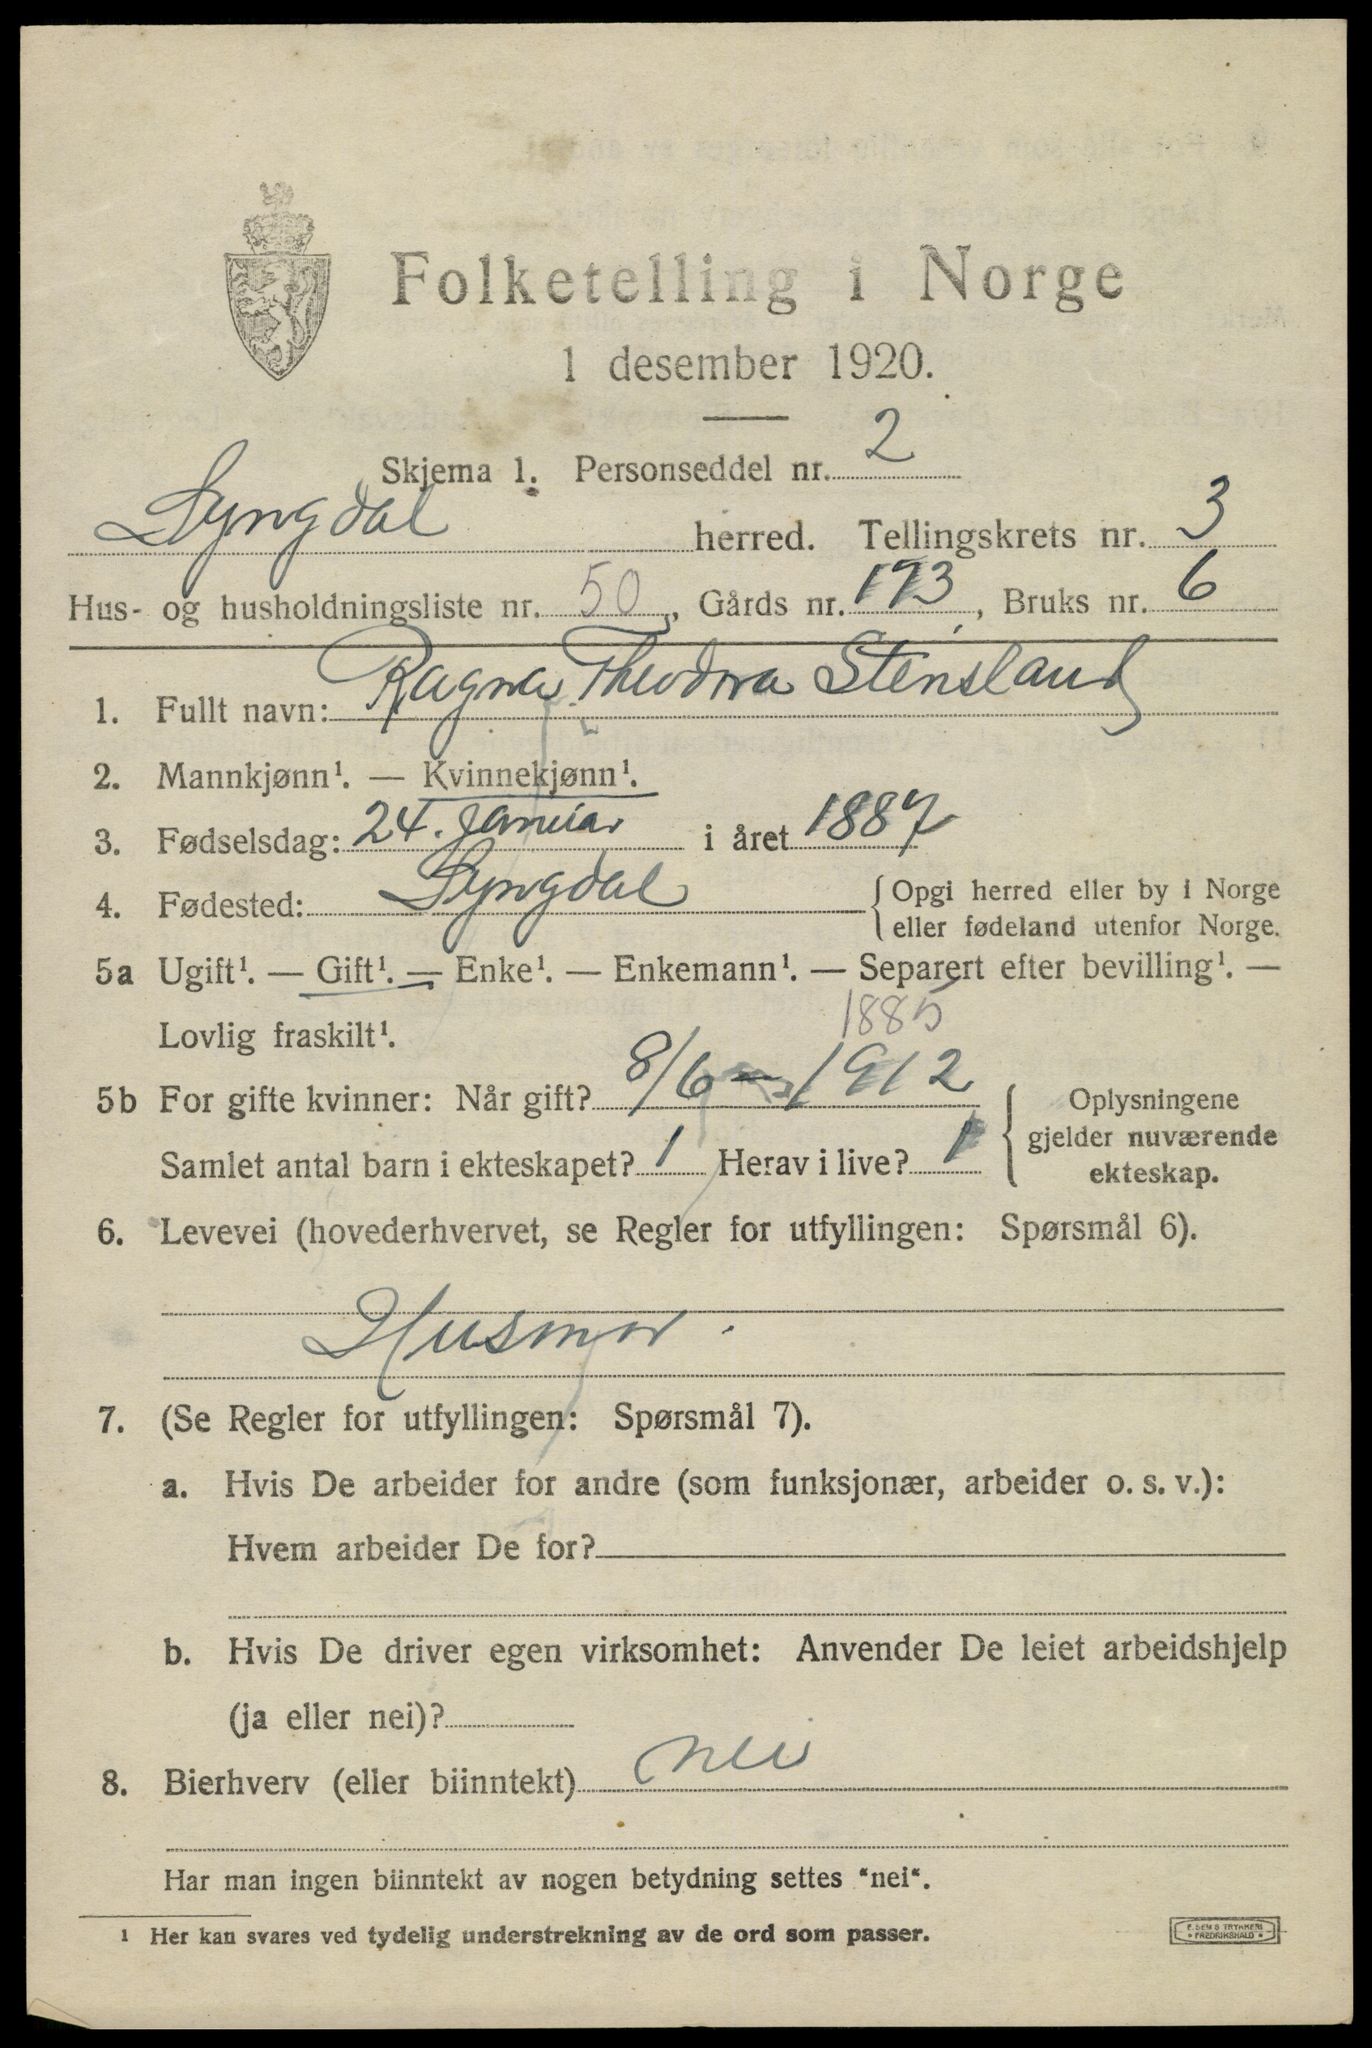 Folketelling i Norge
1 desember 1920.
Skjema 1. Personseddel nr. 2
Lyngdal herred. Tellingskrets nr. 3
Hus- og husholdningsliste nr. 50, Gårds nr. 173, Bruks nr. 6
1. Fullt navn: Ragna Theodora Stensland
2. Mannkjønn¹. — Kvinnekjønn¹.
3. Fødselsdag: 24. januar i året 1887
4. Fødested: Lyngdal {Opgi herred eller by i Norge
eller fødeland utenfor Norge.
5a Ugift¹. — Gift¹. — Enke¹. — Enkemann¹. — Separert efter bevilling¹. —
Lovlig fraskilt¹. 1885
5b For gifte kvinner: Når gift? 8/6 - 1912
Samlet antal barn i ekteskapet? 1 Herav i live? 1
Oplysningene
gjelder nuværende
ekteskap.
6. Levevei (hovederhvervet, se Regler for utfyllingen: Spørsmål 6).
Husmor.
7. (Se Regler for utfyllingen: Spørsmål 7).
a. Hvis De arbeider for andre (som funksjonær, arbeider o. s. v.):
Hvem arbeider De for?
b. Hvis De driver egen virksomhet: Anvender De leiet arbeidshjelp
(ja eller nei)?
8. Bierhverv (eller biinntekt) nei
Har man ingen biinntekt av nogen betydning settes “nei“.
¹ Her kan svares ved tydelig understrekning av de ord som passer.
E. SEM'S TRYKKERI
• FREDRIKSHALD •